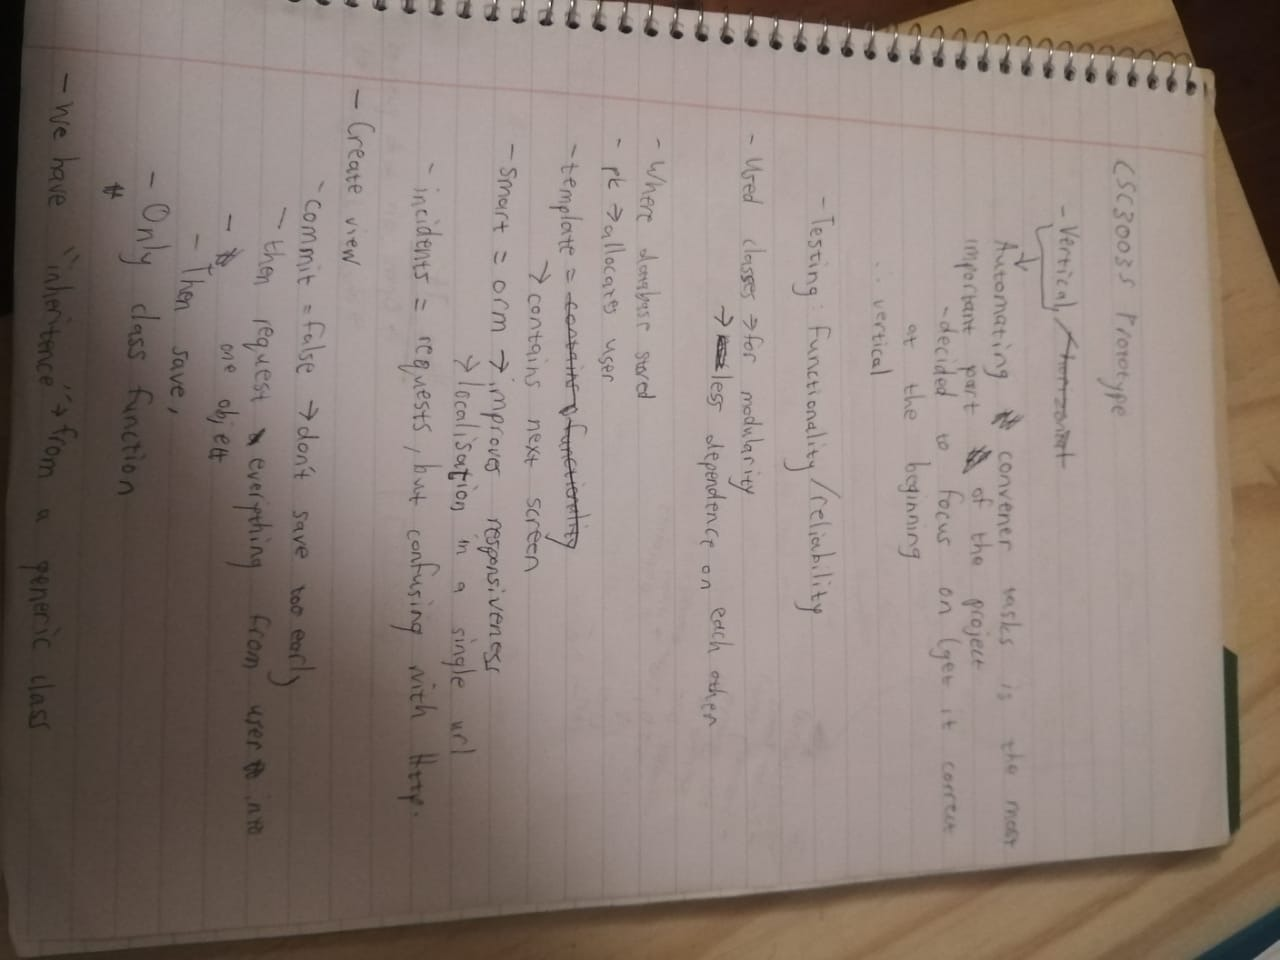 CSC3003S Prototype
- Vertical, / horizontal
Automating convener tasks is the most
important part of the project
- decided to focus on (get it correct
at the beginning
∴ vertical
- Testing: functionality/reliability
- Used classes → for modularity
→ less dependence on each other
- Where database stored
- pk → allocates user
- template = contains functionality
→ contains next screen
- Smart = orm → improves responsiveness
→ localisation in a single url
- incidents = requests, but confusing with Http.
- Create view
- commit = false → don't save too early
- then request everything from user into
- one object
- Then save,
- Only class function
- We have "inheritence" → from a generic class